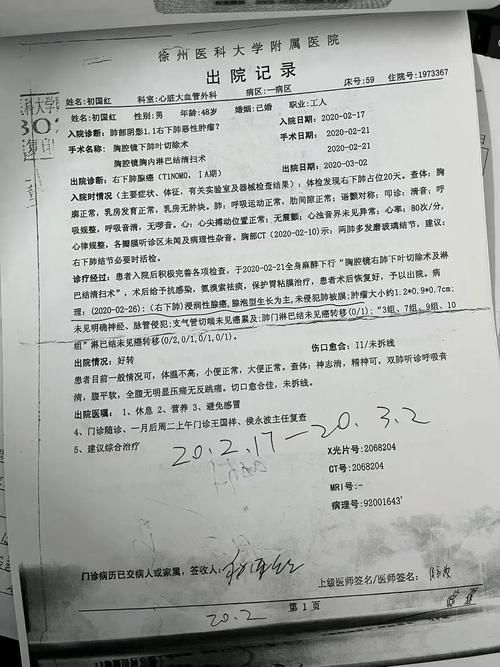 徐州医科大学附属医院
出院记录
床号:59 住院号:1973367
姓名:初国红 科室:心脏大血管外科 病区:一病区
姓名:初国红 性别:男 年龄:48岁 婚姻:已婚 职业:工人
入院诊断:肺部阴影1.1右下肺恶性肿瘤? 入院日期:2020-02-17
手术名称:胸腔镜下肺叶切除术 手术日期:2020-02-21
胸腔镜胸内淋巴结清扫术 2020-02-21
出院诊断:右下肺腺癌(T1N0M0,ⅠA期) 出院日期:2020-03-02
入院时情况(主要症状、体征,有关实验室及器械检查结果):体检发现右下肺占位20天。查体:胸
廓正常,乳房发育正常,乳房无肿块。肺:呼吸运动正常,肋间隙正常;语颤对称;叩诊:清音;呼
吸规整,呼吸音清,无啰音。心:心尖搏动位置正常;无震颤;心浊音界未见异常;心率:80次/分,
心律规整,各瓣膜听诊区未闻及病理性杂音。胸部CT(2020-02-10)示:两肺多发磨玻璃结节,建议:
右下肺结节必要时活检。
诊疗经过:患者入院后积极完善各项检查,于2020-02-21全身麻醉下行"胸腔镜右肺下叶切除术及淋
巴结清扫术",术后给予抗感染,氨溴索祛痰,保护胃粘膜治疗,患者术后恢复好,予以出院。病
理:(2020-02-26):(右下肺)浸润性腺癌,腺泡型生长为主,未侵犯肺被膜;肿瘤大小约1.2*0.9*0.7cm;
未见明确神经、脉管侵犯;支气管切端未见癌累及;肺门淋巴结未见癌转移(0/1);"3组、7组、9组、10
组"淋巴结未见癌转移(0/2,0/1,0/1,0/1)。
出院情况:好转 伤口愈合:II/未拆线
患者目前一般情况可,体温不高,小便正常,大便正常。查体:神志清,精神可,双肺听诊呼吸音
清,腹平软,全腹无明显压痛无反跳痛。切口愈合佳,未拆线。
出院医嘱:1、休息 2、营养 3、避免感冒
4、门诊随诊、一月后周二上午门诊王国祥、侯永波主任复查
5、建议综合治疗
20.2.17—20.3.2
X光片号:2068204
CT号:2068204
MRI号:-
病理号:92001643
门诊病历已交病人或家属,签收人:
上级医师签名/医师签名:
20.2
第1页